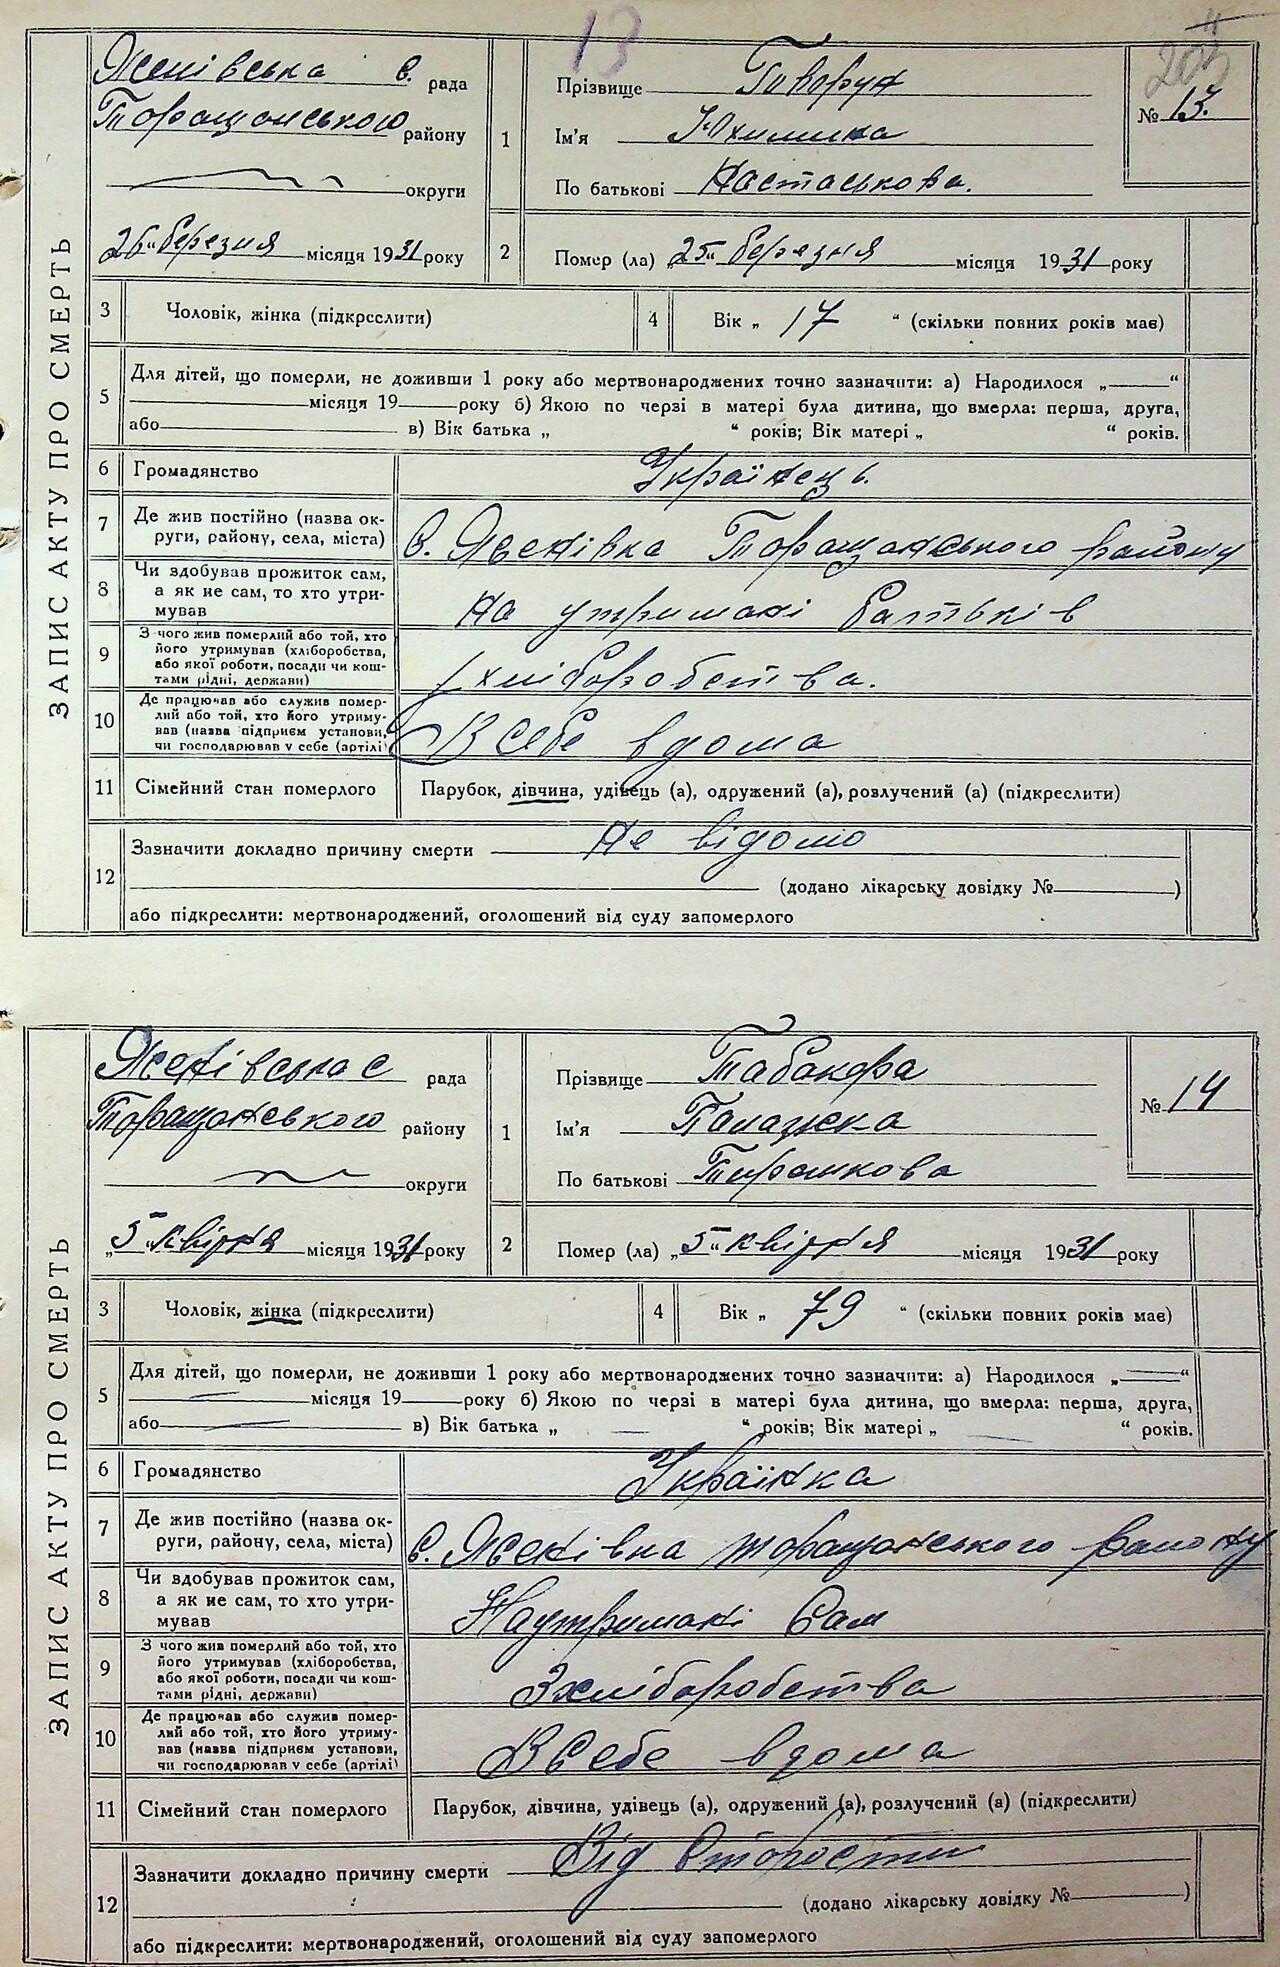 13
ЗАПИС АКТУ ПРО СМЕРТЬ
рада
Таращанського району
округи
26 " березня місяця 1931 року
1
Прізвище Говорун
Ім'я Юхимина
По батькові Настаськова.
№ 13.
2
Помер (ла) „25" березня місяця 1931 року
3
Чоловік, жінка (підкреслити)
4
Вік „ 17 " (скільки повних років має)
5
Для дітей, що померли, не доживши 1 року або мертвонароджених точно зазначити: а) Народилося „ "
місяця 19 року б) Якою по черзі в матері була дитина, що вмерла: перша, друга,
або в) Вік батька „ " років; Вік матері „ " років.
6
Громадянство
Українець.
7
Де жив постійно (назва ок-
руги, району, села, міста)
с. Таращанського району
8
Чи здобував прожиток сам,
а як не сам, то хто утри-
мував
на утримані батьків
9
З чого жив померлий або той, хто
його утримував (хліборобства,
або якої роботи, посади чи кош-
тами рідні, держави)
З хліборобства.
10
Де працював або служив помер-
лий або той, хто його утриму-
вав (назва підприєм установи,
чи господарював у себе (артілі)
В себе вдома
11
Сімейний стан померлого
Парубок, дівчина, удівець (а), одружений (а), розлучений (а) (підкреслити)
12
Зазначити докладно причину смерти Не відомо
(додано лікарську довідку № )
або підкреслити: мертвонароджений, оголошений від суду запомерлого
ЗАПИС АКТУ ПРО СМЕРТЬ
рада
Таращанського району
округи
„5" квітня місяця 1931 року
1
Прізвище Табакора
Ім'я Палажка
По батькові
№ 14
2
Помер (ла) „5" квітня місяця 1931 року
3
Чоловік, жінка (підкреслити)
4
Вік „ 79 " (скільки повних років має)
5
Для дітей, що померли, не доживши 1 року або мертвонароджених точно зазначити: а) Народилося „ "
місяця 19 року б) Якою по черзі в матері була дитина, що вмерла: перша, друга,
або в) Вік батька „ " років; Вік матері „ " років.
6
Громадянство
Українка
7
Де жив постійно (назва ок-
руги, району, села, міста)
с. таращанського району
8
Чи здобував прожиток сам,
а як не сам, то хто утри-
мував
На утримані Сам
9
З чого жив померлий або той, хто
його утримував (хліборобства,
або якої роботи, посади чи кош-
тами рідні, держави)
З хліборобства
10
Де працював або служив помер-
лий або той, хто його утриму-
вав (назва підприєм установи,
чи господарював у себе (артілі)
В себе вдома
11
Сімейний стан померлого
Парубок, дівчина, удівець (а), одружений (а), розлучений (а) (підкреслити)
12
Зазначити докладно причину смерти Від старости
(додано лікарську довідку № )
або підкреслити: мертвонароджений, оголошений від суду запомерлого